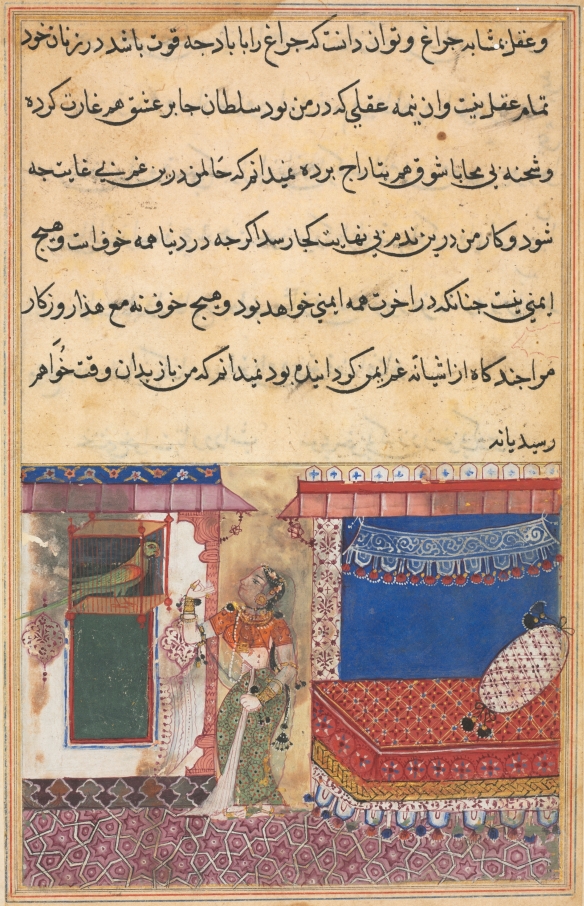 و عقل مشابه چراغ و توان دانست که چراغ را با باد چه قوت باشد در زنان خود
تمام عقل نیست و ان نیمه عقلی که در من بود سلطان جابر عشق هم غارت کرده
و شحنه بی محابا شوق هم بتاراج برده نمیدانم که حال من درین غم بی غایت چه
شود و کار من درین ندم بی نهایت کجا رسد اکر چه در دنیا همه خوف است و هیچ
ایمنی نیست چنانکه در اخرت همه ایمنی خواهد بود و هیچ خوف نه مع هذا روزکار
مرا چند کاه از اشیانه غم ایمن کردانیده بود نمیدانم که من باز بدان وقت خواهم
رسید یا نه